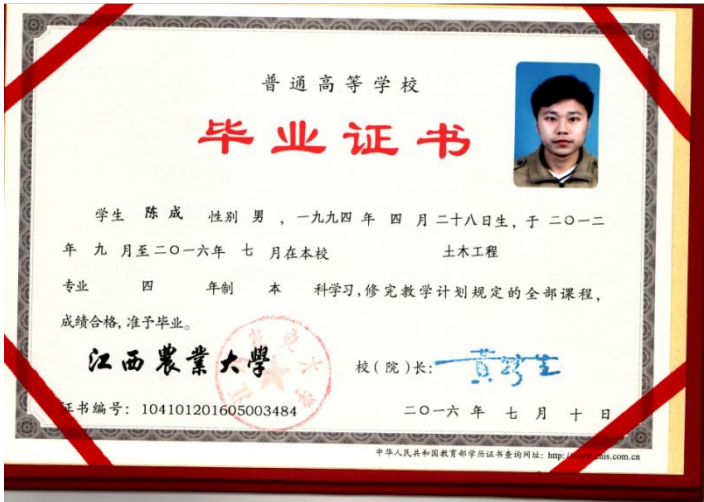 普通高等学校
毕业证书
学生 陈成 性别 男 ，一九九四 年 四 月 二十八日生，于 二〇一二
年 九 月至二〇一六年 七 月在本校 土木工程
专业 四 年制 本 科学习，修完教学计划规定的全部课程，
成绩合格，准予毕业。
江西農業大學
校（院）长：
证书编号：104101201605003484 二〇一六 年 七 月 十 日
中华人民共和国教育部学历证书查询网址：http: